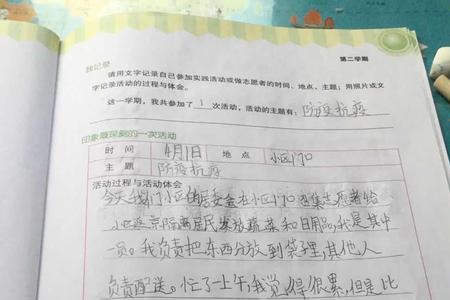 第二学期
践记录
请用文字记录自己参加实践活动或做志愿者的时间、地点、主题；用照片或文
字记录活动的过程与体会。
这一学期，我共参加了 1 次活动，活动的主题有：防疫抗疫
印象最深刻的一次活动
时间 4月1日 地点 小区门口
主题 防疫抗疫
活动过程与活动体会
今天我们小区的居委会在小区门口召集志愿者给
小区返京隔离居民发放蔬菜和日用品,我是其中
一员。我负责把东西分放到袋子里,其他人
负责配送。忙了一上午,我觉得很累,但是比